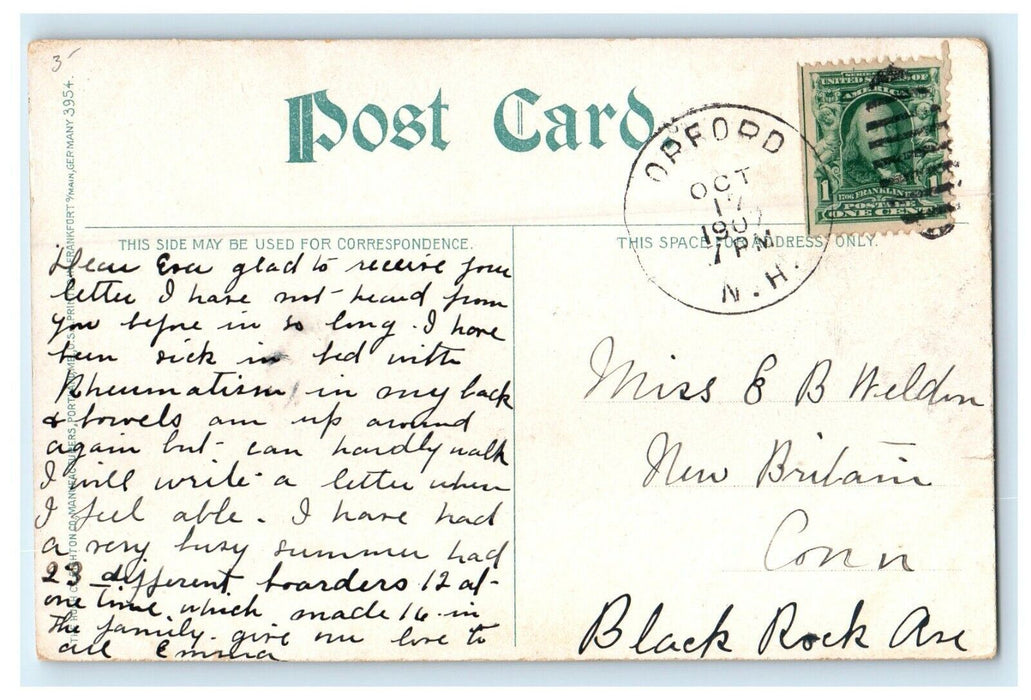 3-
Post Card
ORFORD
OCT
17
190
1 PM
N.H.
SERIES OF
UNITED STATES OF
AMERICA
1 1
1706 FRANKLIN
POSTAGE
ONE CENT
THIS SIDE MAY BE USED FOR CORRESPONDENCE.
THIS SPACE FOR ADDRESS ONLY.
THE HUGH C. LEIGHTON CO., MANUFACTURERS, PORTLAND, ME., U.S.A. PRINTED IN FRANKFORT o/MAIN, GERMANY 3954.
Dear Eva glad to receive your
letter I have not heard from
you before in so long. I have
been sick in bed with
Rheumatism in my back
& bowels am up around
again but can hardly walk
I will write a letter when
I feel able. I have had
a very busy summer had
23 different boarders 12 at
one time, which made 16 in
the family. give my love to
all Emma
Miss E B Weldon
New Britain
Conn
Black Rock Ave